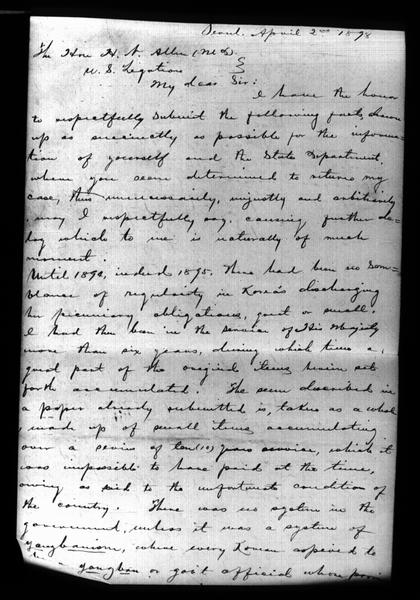 Seoul, April 2nd 1898
The Hon H. N. Allen (M.D.)
U. S. Legation
My dear Sir:
I have the honor
to respectfully submit the following facts, drawn
up as succinctly as possible for the informa-
tion of yourself and the State Department,
where you seem determined to return my
case, thus unnecessarily, unjustly and arbitrarily
, may I respectfully say, causing further de-
lay which to me is naturally of much
moment.
Until 1894, indeed 1895, there had been no sem-
blance of regularity in Korea's discharging
her pecuniary obligations, great or small.
I had then been in the service of His Majesty
more than six years, during which time a
good part of the original items herein set
forth accumulated. The sum described in
a paper already submitted is, taken as a whole
, made up of small items accumulating
over a series of ten (10) years service, which it
was impossible to have paid at the time,
owing as said to the unfortunate condition of
the country. There was no system in the
government, unless it was a system of
yangbanism, where every Korean aspired to
a yangban or gov't official whose